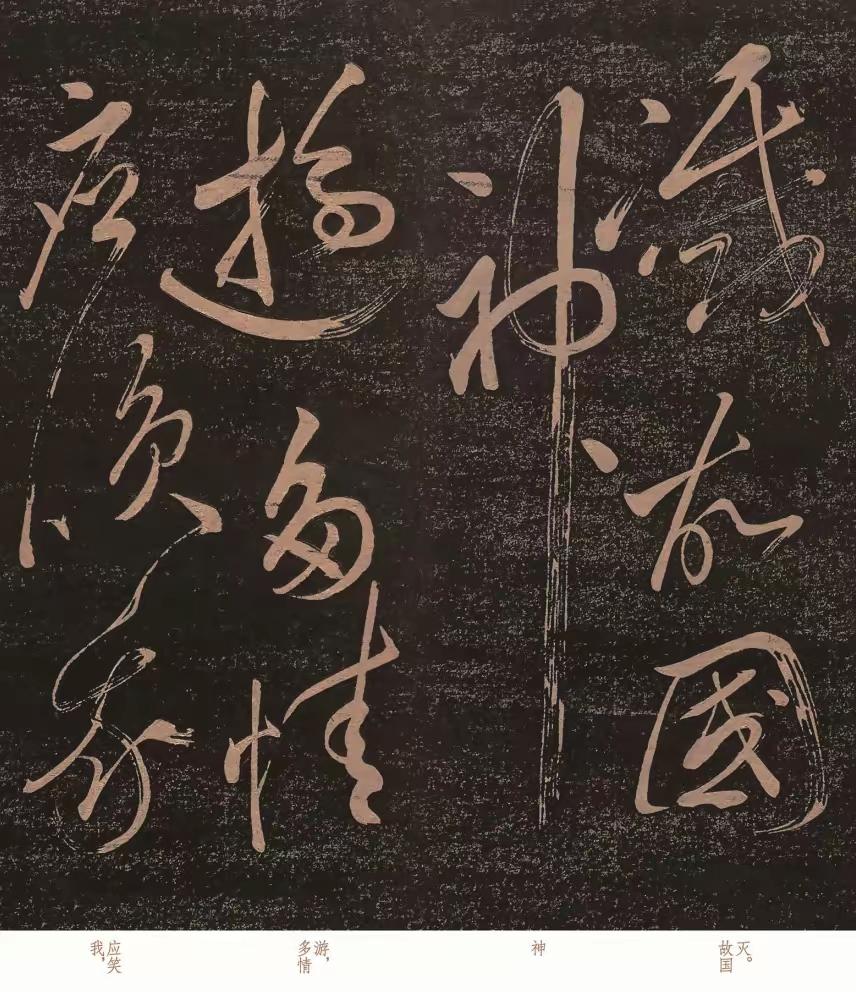 滅故國
神
遊多情
應笑我
灭。
故国
神
游，
多情
应笑
我，